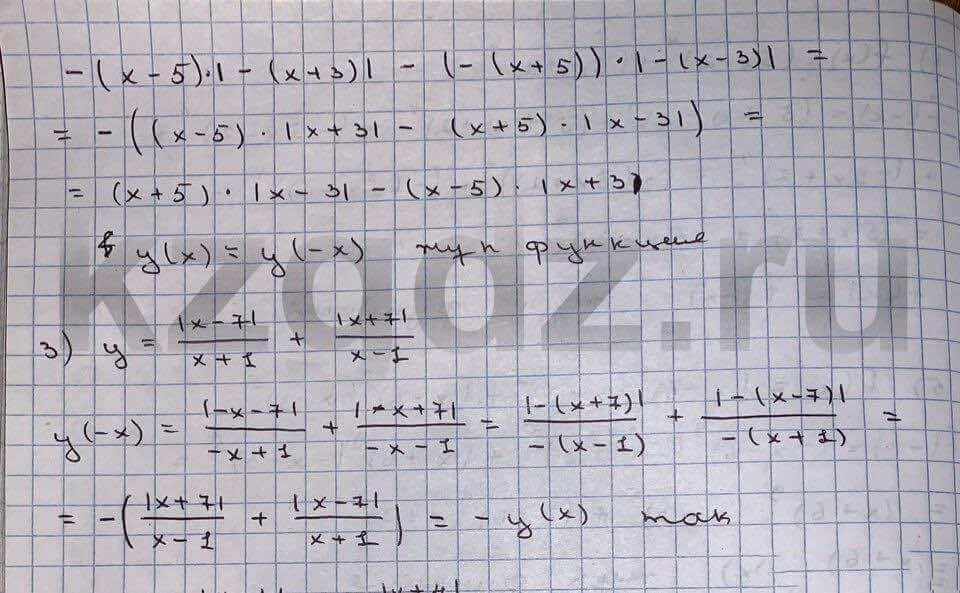 -(x-5)·|-(x+3)| - (-(x+5))·|-(x-3)| =
= -((x-5)·|x+3| - (x+5)·|x-3|) =
= (x+5)·|x-3| - (x-5)·|x+3|
y(x) = y(-x) жуп функция
3) y = |x-7|/(x+1) + |x+7|/(x-1)
y(-x) = |-x-7|/(-x+1) + |-x+7|/(-x-1) = |-(x+7)|/(-(x-1)) + |-(x-7)|/(-(x+1)) =
= -(|x+7|/(x-1) + |x-7|/(x+1)) = -y(x) так
kzgdz.ru